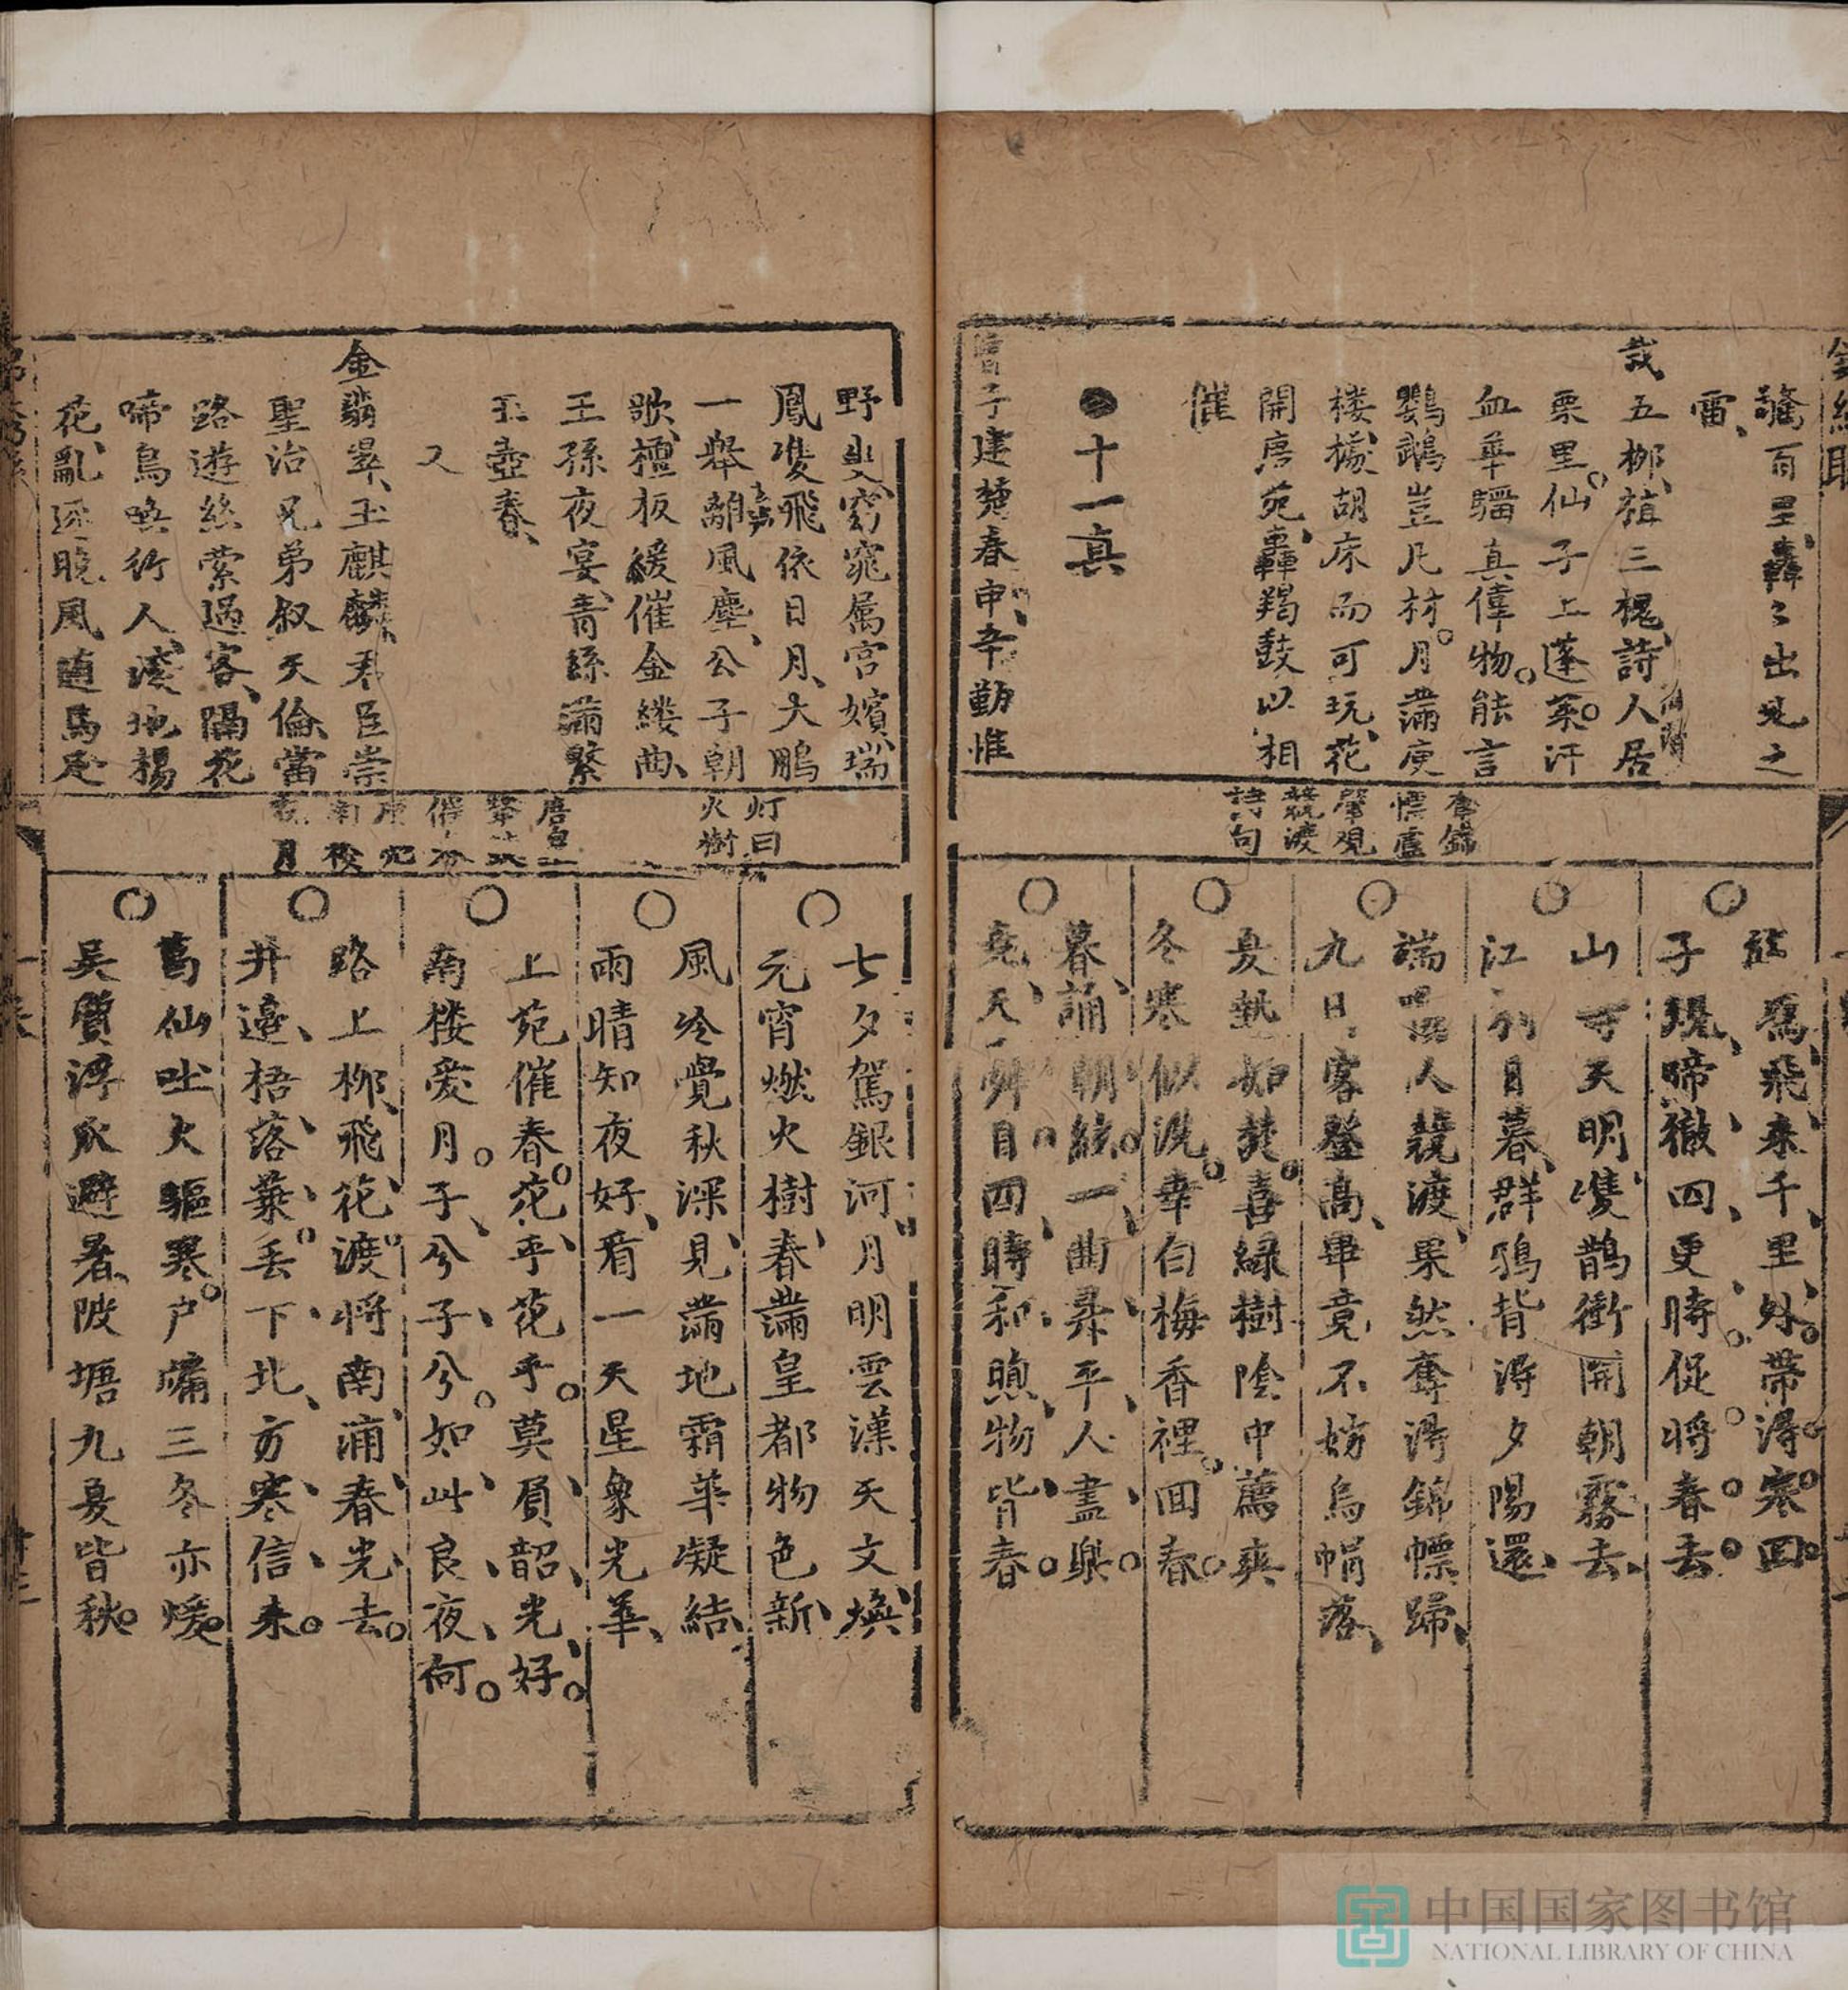 雷
哉五柳植三槐詩人居
栗里仙子上蓬萊汗
血華騮真偉物能言
鸚鵡豈凡材月滿庾
楼橫胡床而可玩花
開唐苑轟羯鼓以相
催
十一真
子建楚春申辛勤惟
奪錦
標盧
肇觀
競渡
詩句
鴈飛来千里外帶得寒回
子規啼徹四更時促將春去
山寺天明隻鵲衝開朝霧去
江別日暮群鴉背得夕陽還
端陽人競渡果然奪得錦幖歸
九日客登髙畢竟不妨烏帽落
夏熱如焚喜緑樹陰中薦爽
冬寒似洗幸白梅香裡回春
暮誦朝絃一曲昇平人盡樂
堯天舜日四時和煦物皆春
野史窈窕属宮嬪瑞
鳳雙飛依日月大鵬
一舉離風塵公子朝
歌檀板緩催金縷曲
王孫夜宴青絲滿繫
玉壺春
又
金翡翠玉麒麟君臣崇
聖治兄弟叙天倫當
路遊絲縈過客隔花
啼鳥喚行人滿地楊
花亂逐曉風隨馬足
灯曰
火樹
七夕駕銀河月明雲漢天文煥
元宵燃火樹春滿皇都物色新
風冷覺秋深見滿地霜華凝結
雨晴知夜好看一天星象光華
上苑催春花乎花乎莫負韶光好
南楼愛月子兮子兮如此良夜何
路上柳飛花渡將南浦春光去
井邉梧落葉丢下北方寒信来
葛仙吐火驅寒户牖三冬亦煖
吳質浮瓜避暑陂塘九夏皆秋
中国国家图书馆
NATIONAL LIBRARY OF CHINA